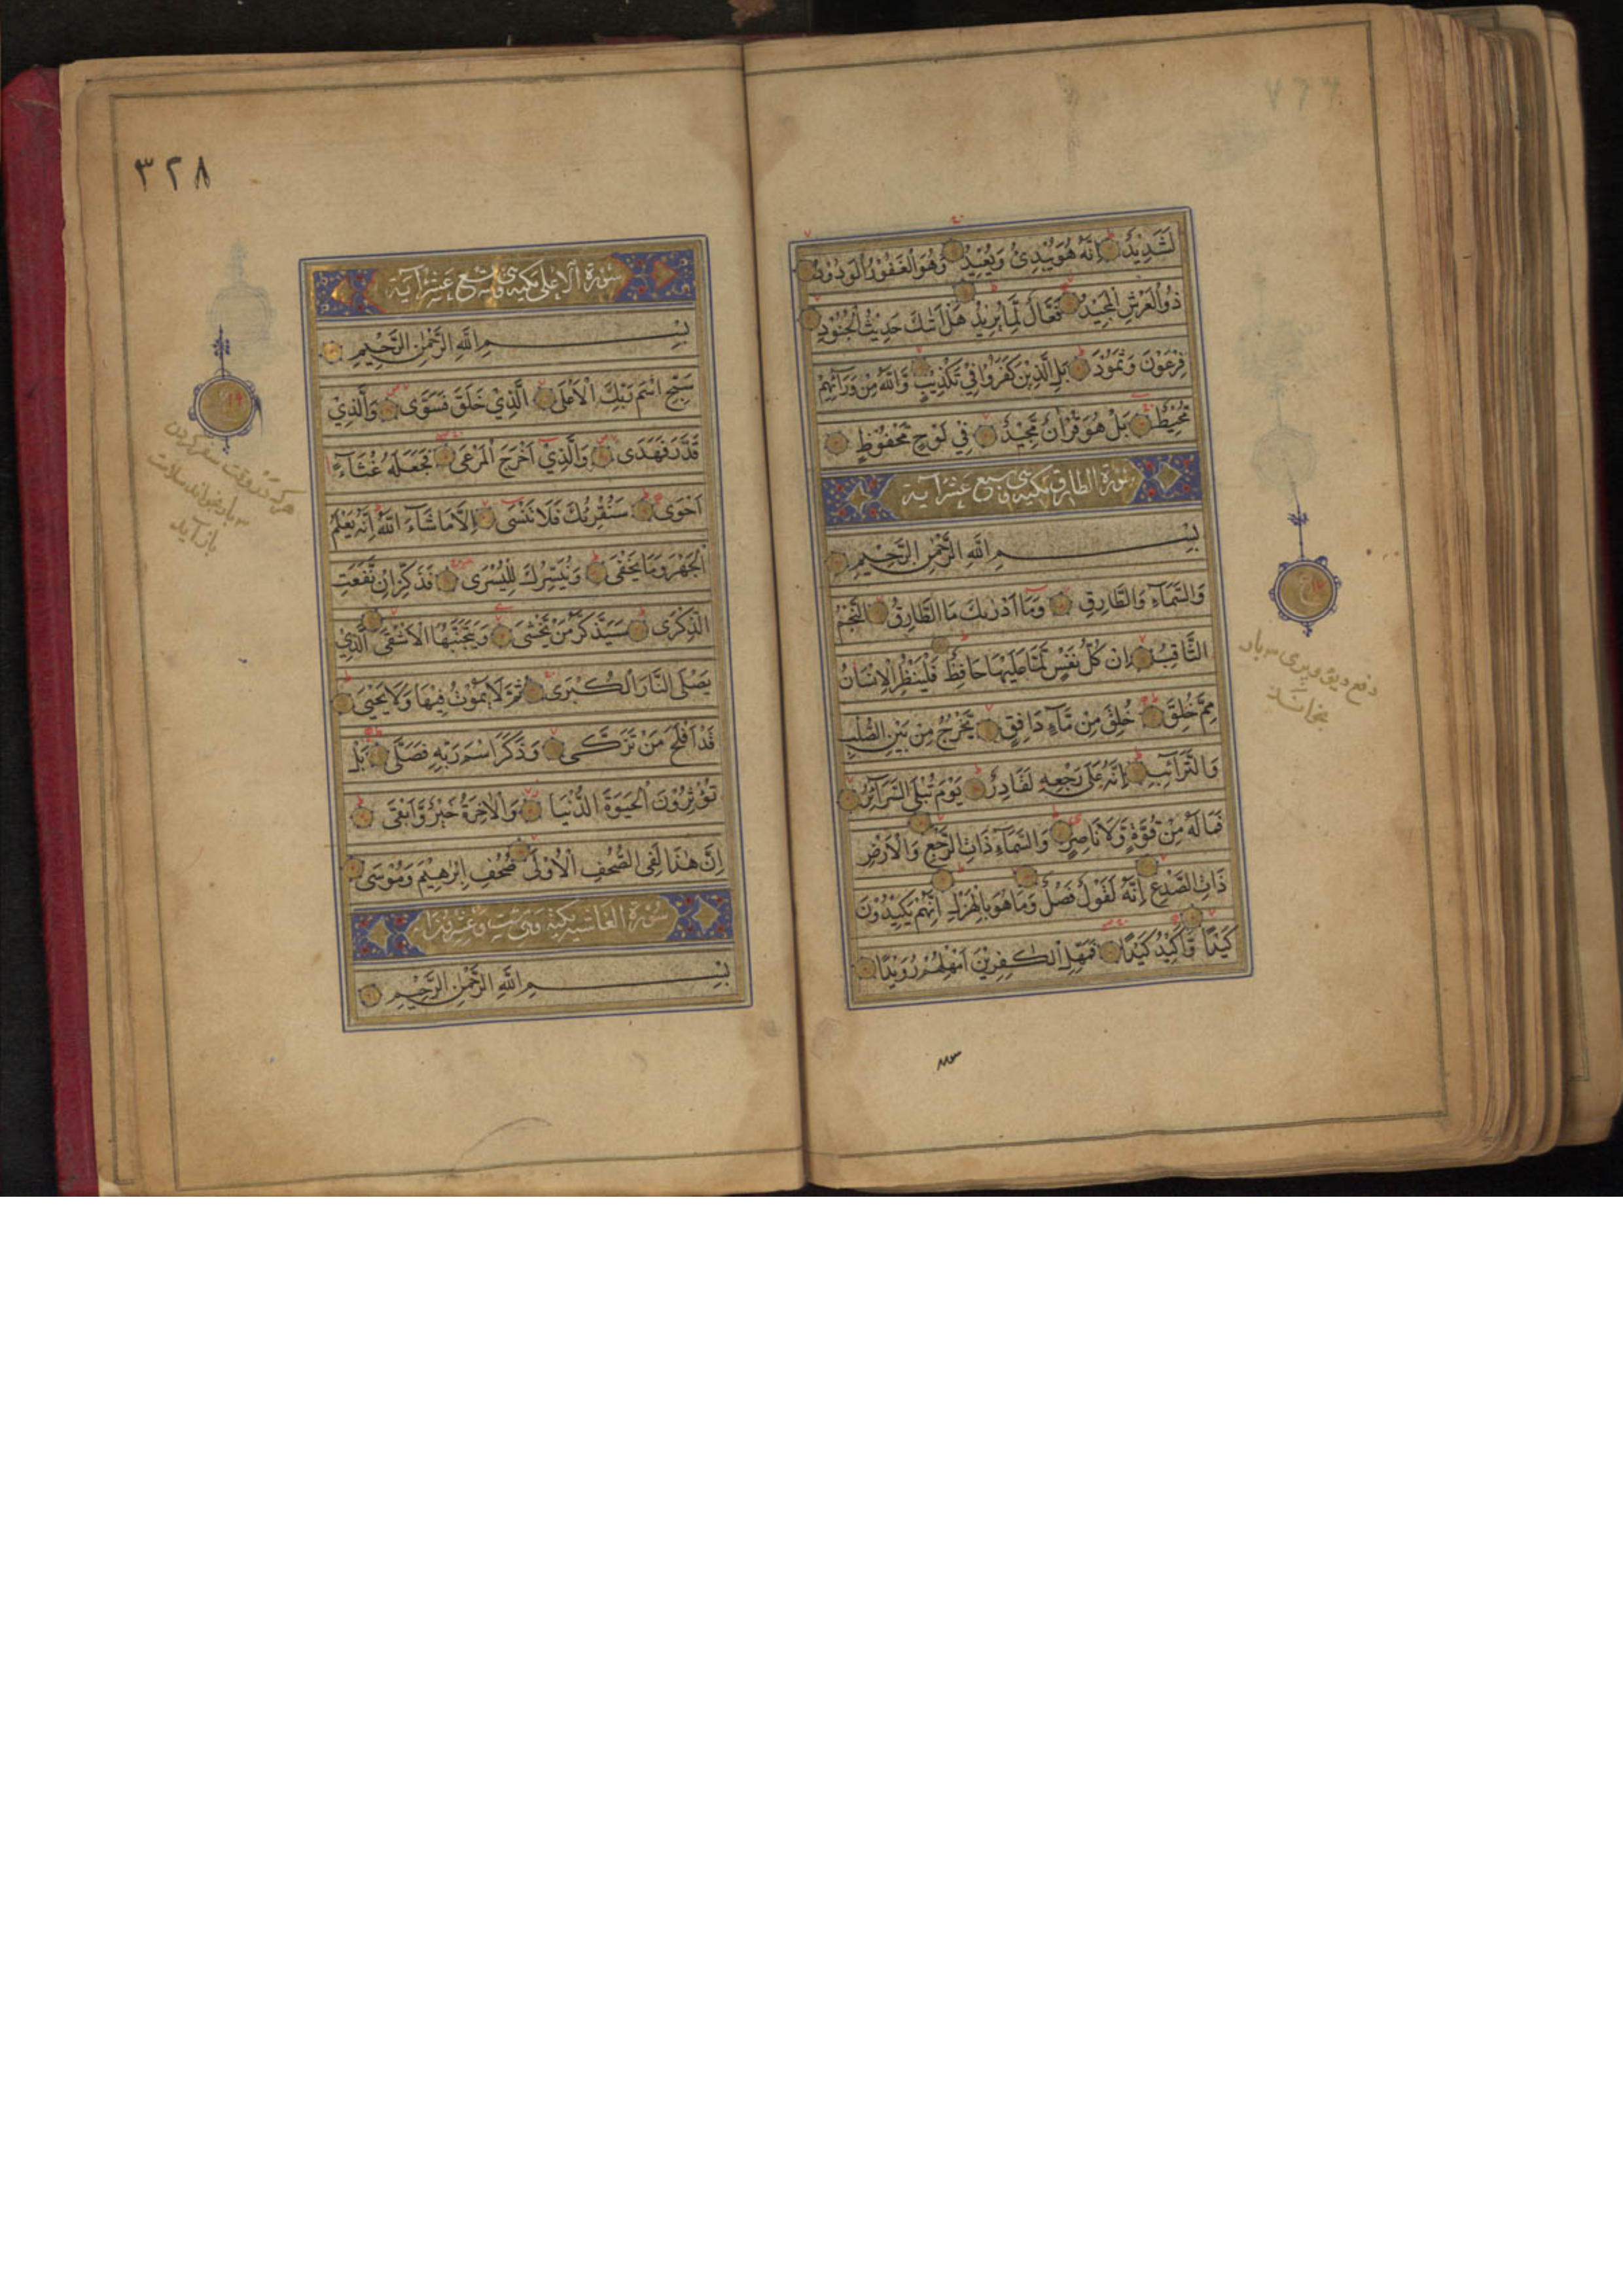 لَشَدِيدٌ اِنَّهُ هُوَ يُبْدِئُ وَيُعِيدُ وَهُوَ الْغَفُورُ الْوَدُودُ
ذُو الْعَرْشِ الْمَجِيدُ فَعَّالٌ لِّمَا يُرِيدُ هَلْ اَتٰكَ حَدِيثُ الْجُنُودِ
فِرْعَوْنَ وَثَمُودَ بَلِ الَّذِينَ كَفَرُوا فِي تَكْذِيبٍ وَّاللّٰهُ مِنْ وَرَآئِهِمْ
مُّحِيطٌ بَلْ هُوَ قُرْاٰنٌ مَّجِيدٌ فِي لَوْحٍ مَّحْفُوظٍ
سورة الطارق مكية وهي سبع عشر آية
بِسْمِ اللّٰهِ الرَّحْمٰنِ الرَّحِيمِ
وَالسَّمَآءِ وَالطَّارِقِ وَمَآ اَدْرٰىكَ مَا الطَّارِقُ النَّجْمُ
الثَّاقِبُ اِنْ كُلُّ نَفْسٍ لَّمَّا عَلَيْهَا حَافِظٌ فَلْيَنْظُرِ الْاِنْسَانُ
مِمَّ خُلِقَ خُلِقَ مِنْ مَّآءٍ دَافِقٍ يَّخْرُجُ مِنْ بَيْنِ الصُّلْبِ
وَالتَّرَآئِبِ اِنَّهُ عَلٰى رَجْعِهِ لَقَادِرٌ يَوْمَ تُبْلَى السَّرَآئِرُ
فَمَا لَهُ مِنْ قُوَّةٍ وَّلَا نَاصِرٍ وَالسَّمَآءِ ذَاتِ الرَّجْعِ وَالْاَرْضِ
ذَاتِ الصَّدْعِ اِنَّهُ لَقَوْلٌ فَصْلٌ وَمَا هُوَ بِالْهَزْلِ اِنَّهُمْ يَكِيدُونَ
كَيْدًا وَّاَكِيدُ كَيْدًا فَمَهِّلِ الْكٰفِرِينَ اَمْهِلْهُمْ رُوَيْدًا
دفع ديو و پرى ٣ بار
بخواند
٣٢٨
سورة الاعلى مكية وهي تسع عشر آية
بِسْمِ اللّٰهِ الرَّحْمٰنِ الرَّحِيمِ
سَبِّحِ اسْمَ رَبِّكَ الْاَعْلَى الَّذِي خَلَقَ فَسَوّٰى وَالَّذِي
قَدَّرَ فَهَدٰى وَالَّذِي اَخْرَجَ الْمَرْعٰى فَجَعَلَهُ غُثَآءً
اَحْوٰى سَنُقْرِئُكَ فَلَا تَنْسٰى اِلَّا مَا شَآءَ اللّٰهُ اِنَّهُ يَعْلَمُ
الْجَهْرَ وَمَا يَخْفٰى وَنُيَسِّرُكَ لِلْيُسْرٰى فَذَكِّرْ اِنْ نَّفَعَتِ
الذِّكْرٰى سَيَذَّكَّرُ مَنْ يَّخْشٰى وَيَتَجَنَّبُهَا الْاَشْقَى الَّذِي
يَصْلَى النَّارَ الْكُبْرٰى ثُمَّ لَا يَمُوتُ فِيهَا وَلَا يَحْيٰى
قَدْ اَفْلَحَ مَنْ تَزَكّٰى وَذَكَرَ اسْمَ رَبِّهِ فَصَلّٰى بَلْ
تُؤْثِرُونَ الْحَيٰوةَ الدُّنْيَا وَالْاٰخِرَةُ خَيْرٌ وَّاَبْقٰى
اِنَّ هٰذَا لَفِي الصُّحُفِ الْاُولٰى صُحُفِ اِبْرٰهِيمَ وَمُوسٰى
سورة الغاشية مكية وهي ست وعشرون آية
بِسْمِ اللّٰهِ الرَّحْمٰنِ الرَّحِيمِ
هركه در وقت سفر كردن
٣ بار بخواند سلامت
باز آيد